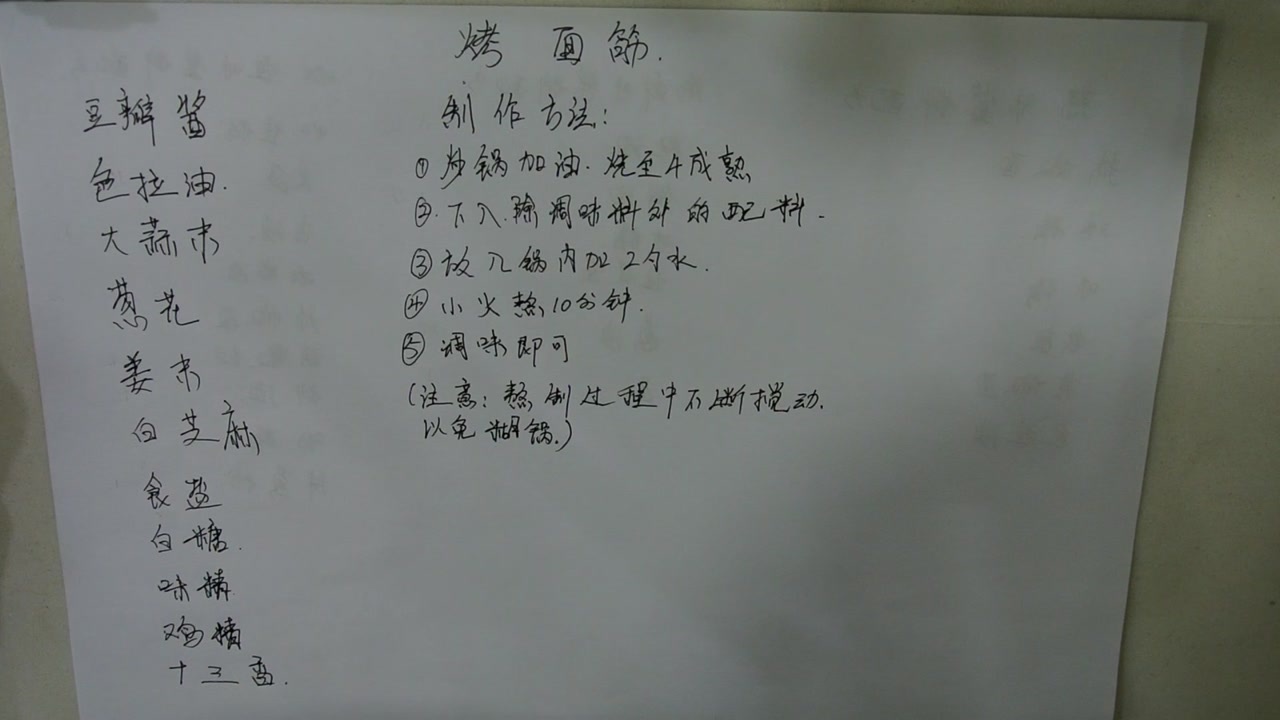 烤面筋.
豆瓣酱
色拉油.
大蒜末
葱花
姜末
白芝麻
食盐
白糖.
味精
鸡精
十三香.
制作方法:
①炒锅加油.烧至4成熟
②.下入.除调味料外的配料.
③放入锅内加2勺水.
④小火熬10分钟.
⑤调味即可
(注意:熬制过程中不断搅动.
以免糊锅.)